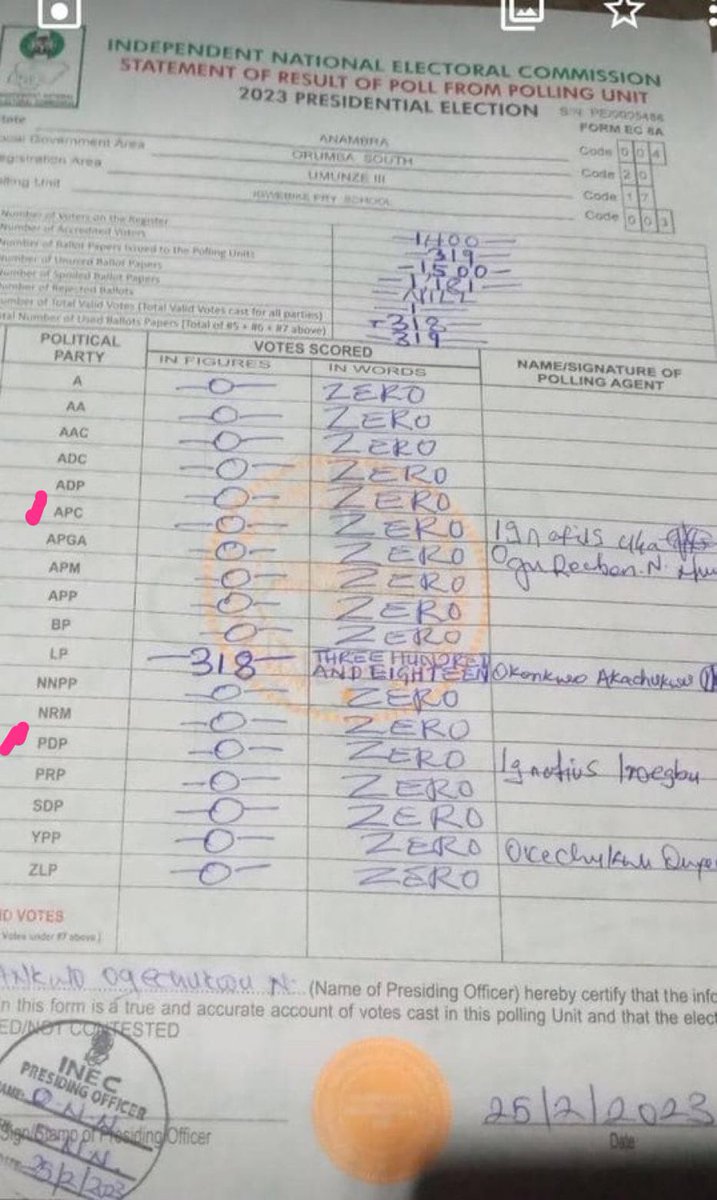 INDEPENDENT NATIONAL ELECTORAL COMMISSION
STATEMENT OF RESULT OF POLL FROM POLLING UNIT
2023 PRESIDENTIAL ELECTION
FORM EC 8A
tate ANAMBRA Code 0 0 4
Government Area ORUMBA SOUTH Code 2 0
egistration Area UMUNZE III Code 1 7
lling Unit SCHOOL Code 0 0 3
Number of Voters on the Register 1400
Number of Accredited Voters 319
Number of Ballot Papers Issued to the Polling Unit 1,500
umber of Unused Ballot Papers 1,181
umber of Spoiled Ballot Papers
umber of Rejected Ballots 1
umber of Total Valid Votes (Total Valid Votes cast for all parties) 318
tal Number of Used Ballots Papers (Total of #5 + #6 + #7 above) 319
POLITICAL PARTY VOTES SCORED NAME/SIGNATURE OF POLLING AGENT
IN FIGURES IN WORDS
A -0- ZERO
AA -0- ZERO
AAC -0- ZERO
ADC -0- ZERO
ADP -0- ZERO
APC -0- ZERO
APGA -0- ZERO
APM -0- ZERO
APP -0- ZERO
BP -0- ZERO
LP -318- THREE HUNDRED AND EIGHTEEN Okonkwo Akachukwu
NNPP -0- ZERO
NRM -0- ZERO
PDP -0- ZERO Ignatius Iroegbu
PRP -0- ZERO
SDP -0- ZERO
YPP -0- ZERO
ZLP -0- ZERO
D VOTES
Votes under #7 above)
Ogechukwu N. (Name of Presiding Officer) hereby certify that the info
n this form is a true and accurate account of votes cast in this polling Unit and that the elect
ED/NOT CONTESTED
INEC
PRESIDING OFFICER
O.N.N
Sign/Stamp of Presiding Officer
25/2/2023
25/2/2023
Date